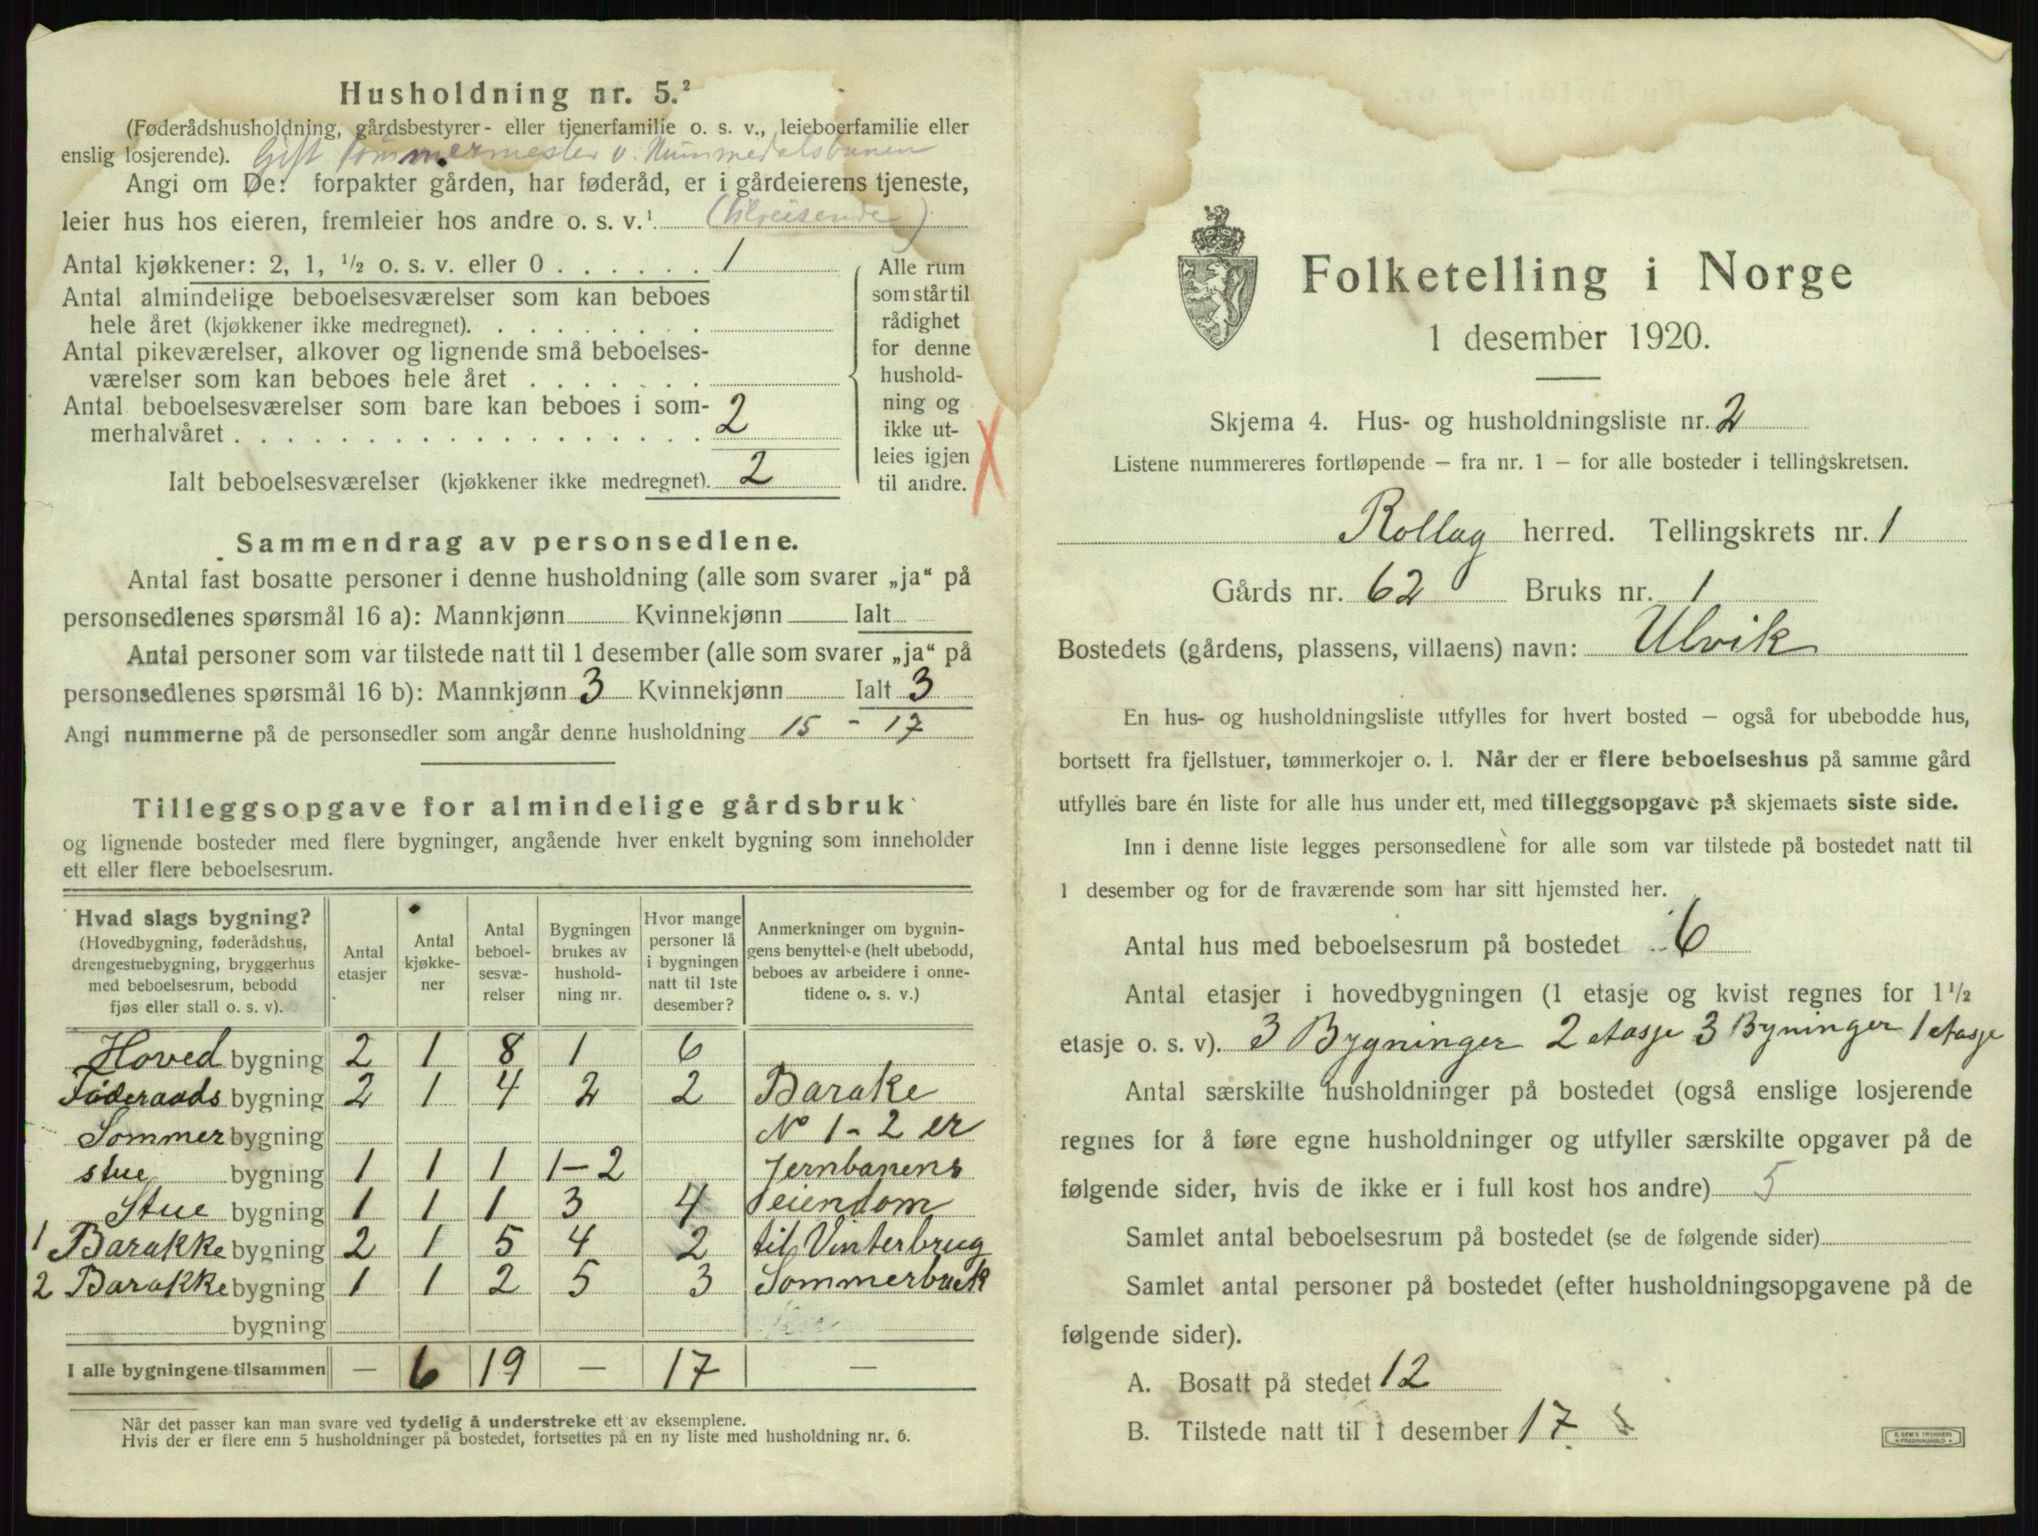 Husholdning nr. 5.²
(Føderådshusholdning, gårdsbestyrer- eller tjenerfamilie o. s. v., leieboerfamilie eller
enslig losjerende). Gift tømmermester v. Nummedalsbanen
Angi om De: forpakter gården, har føderåd, er i gårdeierens tjeneste,
leier hus hos eieren, fremleier hos andre o. s. v.¹ (tilreisende)
Antal kjøkkener: 2, 1, ½ o. s. v. eller 0 . . . . . . 1
Antal almindelige beboelsesværelser som kan beboes
hele året (kjøkkener ikke medregnet). . . . . . . . .
Antal pikeværelser, alkover og lignende små beboelses-
værelser som kan beboes hele året . . . . . . .
Antal beboelsesværelser som bare kan beboes i som-
merhalvåret . . . . . . . . . . . . . . . . . . 2
Ialt beboelsesværelser (kjøkkener ikke medregnet). 2
Alle rum
som står til
rådighet
for denne
hushold-
ning og
ikke ut-
leies igjen
til andre.
Sammendrag av personsedlene.
Antal fast bosatte personer i denne husholdning (alle som svarer „ja“ på
personsedlenes spørsmål 16 a): Mannkjønn Kvinnekjønn Ialt
Antal personer som var tilstede natt til 1 desember (alle som svarer „ja“ på
personsedlenes spørsmål 16 b): Mannkjønn 3 Kvinnekjønn Ialt 3
Angi nummerne på de personsedler som angår denne husholdning 15 - 17
Tilleggsopgave for almindelige gårdsbruk
og lignende bosteder med flere bygninger, angående hver enkelt bygning som inneholder
ett eller flere beboelsesrum.
Hvad slags bygning?
(Hovedbygning, føderådshus,
drengestuebygning, bryggerhus
med beboelsesrum, bebodd
fjøs eller stall o. s. v).
Antal
etasjer
Antal
kjøkke-
ner
Antal
beboel-
sesvæ-
relser
Bygningen
brukes av
hushold-
ning nr.
Hvor mange
personer lå
i bygningen
natt til 1ste
desember?
Anmerkninger om bygnin-
gens benyttelse (helt ubebodd,
beboes av arbeidere i onne-
tidene o. s. v.)
Hoved bygning 2 1 8 1 6
Føderaads bygning 2 1 4 2 2 Barake
Sommer bygning No 1-2 er
stue bygning 1 1 1 1-2 Jernbanens
Stue bygning 1 1 1 3 4 eiendom
1 Barakke bygning 2 1 5 4 2 til Vinterbrug
2 Barakke bygning 1 1 2 5 3 Sommerbruk
bygning
I alle bygningene tilsammen — 6 19 — 17 —
Når det passer kan man svare ved tydelig å understreke ett av eksemplene.
Hvis der er flere enn 5 husholdninger på bostedet, fortsettes på en ny liste med husholdning nr. 6.
Folketelling i Norge
1 desember 1920.
Skjema 4. Hus- og husholdningsliste nr. 2
Listene nummereres fortløpende — fra nr. 1 — for alle bosteder i tellingskretsen.
Rollag herred. Tellingskrets nr. 1
Gårds nr. 62 Bruks nr. 1
Bostedets (gårdens, plassens, villaens) navn: Ulvik
En hus- og husholdningsliste utfylles for hvert bosted — også for ubebodde hus,
bortsett fra fjellstuer, tømmerkojer o. l. Når der er flere beboelseshus på samme gård
utfylles bare én liste for alle hus under ett, med tilleggsopgave på skjemaets siste side.
Inn i denne liste legges personsedlene for alle som var tilstede på bostedet natt til
1 desember og for de fraværende som har sitt hjemsted her.
Antal hus med beboelsesrum på bostedet 6
Antal etasjer i hovedbygningen (1 etasje og kvist regnes for 1½
etasje o. s. v). 3 Bygninger 2 etasje 3 Byninger 1 etasje
Antal særskilte husholdninger på bostedet (også enslige losjerende
regnes for å føre egne husholdninger og utfyller særskilte opgaver på de
følgende sider, hvis de ikke er i full kost hos andre) 5
Samlet antal beboelsesrum på bostedet (se de følgende sider)
Samlet antal personer på bostedet (efter husholdningsopgavene på de
følgende sider).
A. Bosatt på stedet 12
B. Tilstede natt til 1 desember 17
E. SEM'S TRYKKERI
FREDRIKSHALD